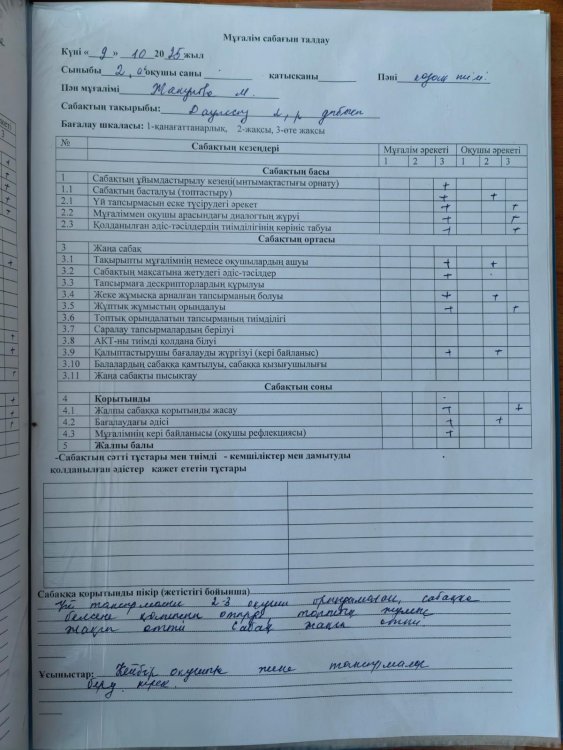 Мұғалім сабағын талдау
Күні « 9 » 10 2025 жыл
Сыныбы 2 оқушы саны қатысканы Пәні қазақ тілі
Пән мұғалімі М.
Сабақтың тақырыбы: Дауыссыз дыбысы
Бағалау шкаласы: 1-қанағаттанарлық, 2-жақсы, 3-өте жақсы
№ Сабақтың кезеңдері Мұғалім әрекеті Оқушы әрекеті
1 2 3 1 2 3
Сабақтың басы
1 Сабақтың ұйымластырылу кезеңі(ынтымақтастығы орнату) +
1.1 Сабақтың басталуы (топтастыру) + +
2.1 Үй тапсырмасын еске түсірудегі әрекет + +
2.2 Мұғаліммен оқушы арасындағы диалогтың жүруі + +
2.3 Қолданылған әдіс-тәсілдердің тиімділігінің көрініс табуы + +
Сабақтың ортасы
3 Жаңа сабақ
3.1 Тақырыпты мұғалімнің немесе оқушылардың ашуы + +
3.2 Сабақтың мақсатына жетудегі әдіс-тәсілдер +
3.3 Тапсырмаға дескрипторлардың құрылуы
3.4 Жеке жұмысқа арналған тапсырманың болуы + +
3.5 Жұптық жұмыстың орындалуы + +
3.6 Топтық орындалатын тапсырманың тиімділігі
3.7 Саралау тапсырмалардың берілуі
3.8 АКТ-ны тиімді қолдана білуі
3.9 Қалыптастырушы бағалауды жүргізуі (кері байланыс) + +
3.10 Балалардың сабаққа қамтылуы, сабаққа қызығушылығы
3.11 Жаңа сабақты пысықтау
Сабақтың соңы
4 Қорытынды
4.1 Жалпы сабаққа қорытынды жасау + +
4.2 Бағалаудағы әдісі + +
4.3 Мұғалімнің кері байланысы (оқушы рефлекциясы) +
5 Жалпы балы
-Сабақтың сәтті тұстары мен тиімді - кемшіліктер мен дамытуды
қолданылған әдістер қажет ететін тұстары
Сабаққа қорытынды пікір (жетістігі бойынша)
Үй тапсырмасын 2-3 оқушы орындамаған, сабаққа
белсене топтық жұмыс
жақсы өтті сабақ жақсы өтті.
Ұсыныстар: Кейбір оқушыға жеке тапсырмалар
беру керек.